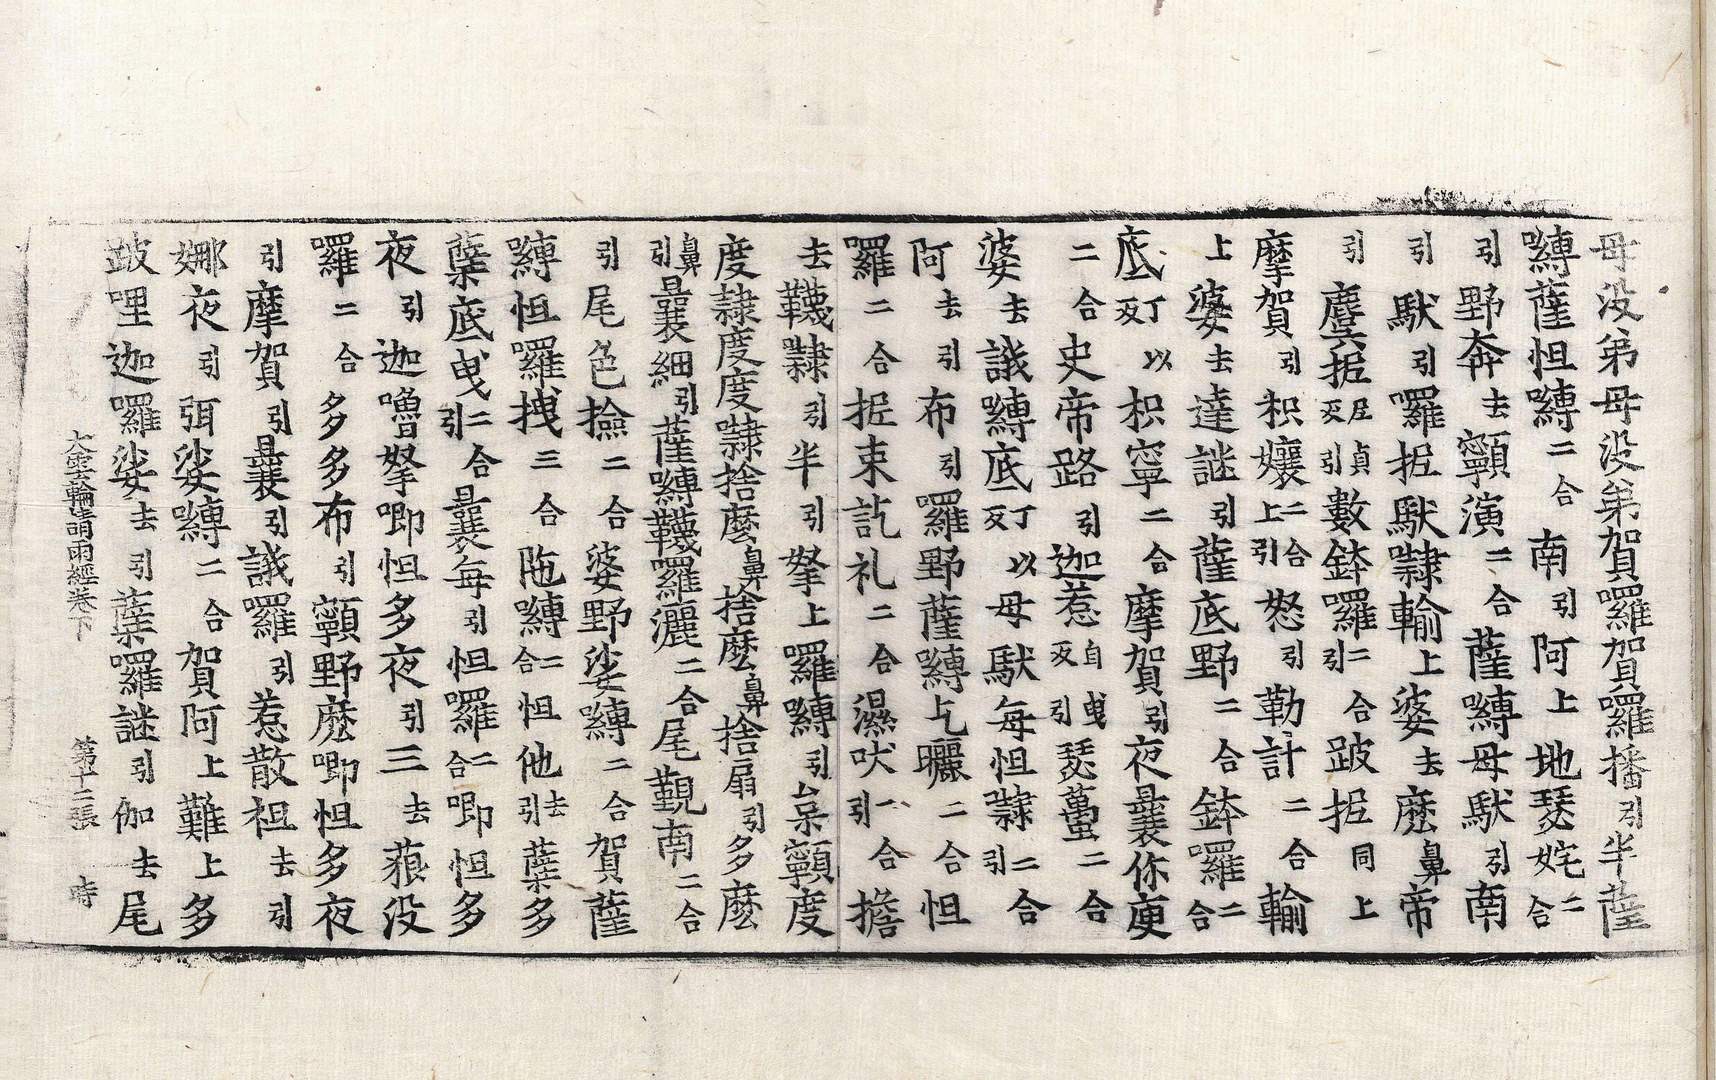 母没弟母没弟賀囉賀囉播引半薩
嚩薩怛嚩二合南引阿上地瑟姹二合
引野奔去顐演二合薩嚩母馱引南
引馱引囉抳馱㘑輸上婆去麽鼻帝
引麌抳尼貞反引數鉢囉二合引跛抳同上
摩賀引枳孃二合上引怒引勤計二合輸
上婆去達謎引薩底野二合鉢囉二合
底丁以反枳寧二合摩賀引夜曩你庾
二合史帝路引迦惹自曳反引瑟蠆二合
婆去誐嚩底丁以反母馱每怛㘑二合引
阿去引布引囉野薩嚩乞曬二合怛
囉二合抳束訖礼二合濕吠二合引擔
去韈㘑引半引拏上囉嚩引枲顐度
度㘑度度㘑捨麽鼻捨麽鼻捨扇引多麽
鼻引曩細引薩嚩韈囉灑二合尾覲南二合
引尾色撿二合婆野娑嚩二合賀薩
嚩怛囉拽三合陁嚩二合怛他去引蘖多
蘖底曳二合引曩每引怛囉二合唧怛多
夜引迦嚕拏唧怛多夜引三去藐没
囉二合多多布引顐野麽唧怛多夜
引摩賀引曩引誐囉引惹散祖去引
娜夜引弭娑嚩二合賀阿上難上多
跛哩迦囉娑去引蘖囉謎引伽去尾
大雲輪請雨經卷下 第十二張 時